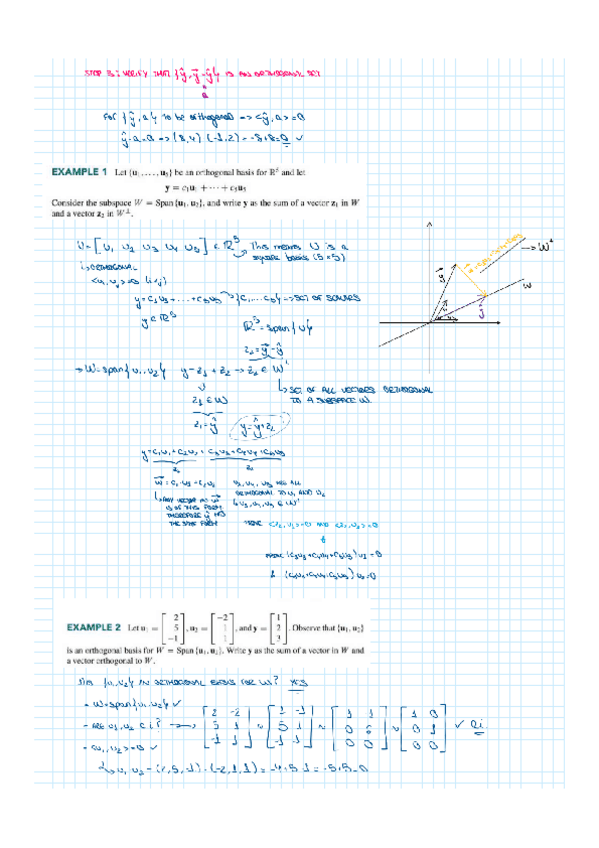 STEP 3: VERIFY THAT {ŷ, y⃗-ŷ} IS AN ORTHOGONAL SET
a
For {ŷ, a} to be orthogonal => <ŷ, a> = 0
ŷ·a=0 => (8,4)·(-1,2) = -8+8=0 ✓
EXAMPLE 1 Let {u₁, …, u₅} be an orthogonal basis for ℝ⁵ and let
y = c₁u₁ + ··· + c₅u₅
Consider the subspace W = Span {u₁, u₂}, and write y as the sum of a vector z₁ in W
and a vector z₂ in W⊥.
U = [u₁ u₂ u₃ u₄ u₅] ∈ ℝ⁵ This means U is a
square basis (5=5)
ORTHOGONAL
y = c₁u₁ + ... + c₅u₅
y ∈ ℝ⁵
z₂ = y⃗ - ŷ
W⊥
W
y⃗
ŷ
-> W = span{u₁, u₂} y = z₁ + z₂ -> z₂ ∈ W⊥
SET OF ALL VECTORS ORTHOGONAL
TO A SUBSPACE W
z₁ ∈ W
z₁ = ŷ y = ŷ + z₂
y = c₁u₁ + c₂u₂ + c₃u₃ + c₄u₄ + c₅u₅
z₁ z₂
u₃, u₄, u₅ ARE ALL
ORTHOGONAL TO u₁ AND u₂
IS OF THIS FORM
THEREFORE ŷ HAS
THE SAME FORM
<z₂, u₁> = 0 AND <z₂, u₂> = 0
(c₃u₃ + c₄u₄ + c₅u₅) u₁ = 0
& (c₃u₃ + c₄u₄ + c₅u₅) u₂ = 0
EXAMPLE 2 Let u₁ = [2 5 -1], u₂ = [-2 1 1], and y = [1 2 3]. Observe that {u₁, u₂}
is an orthogonal basis for W = Span {u₁, u₂}. Write y as the sum of a vector in W and
a vector orthogonal to W.
{u₁, u₂} AN ORTHOGONAL BASIS FOR W? YES
- W = span{u₁, u₂} ✓
- ARE u₁, u₂ L.I? -> [2 -2; 5 1; -1 1] ~ [1 -1; 5 1; -1 1] ~ [1 1; 0 6; 0 0] ~ [1 0; 0 1; 0 0] ✓
- <u₁, u₂> = 0 ✓